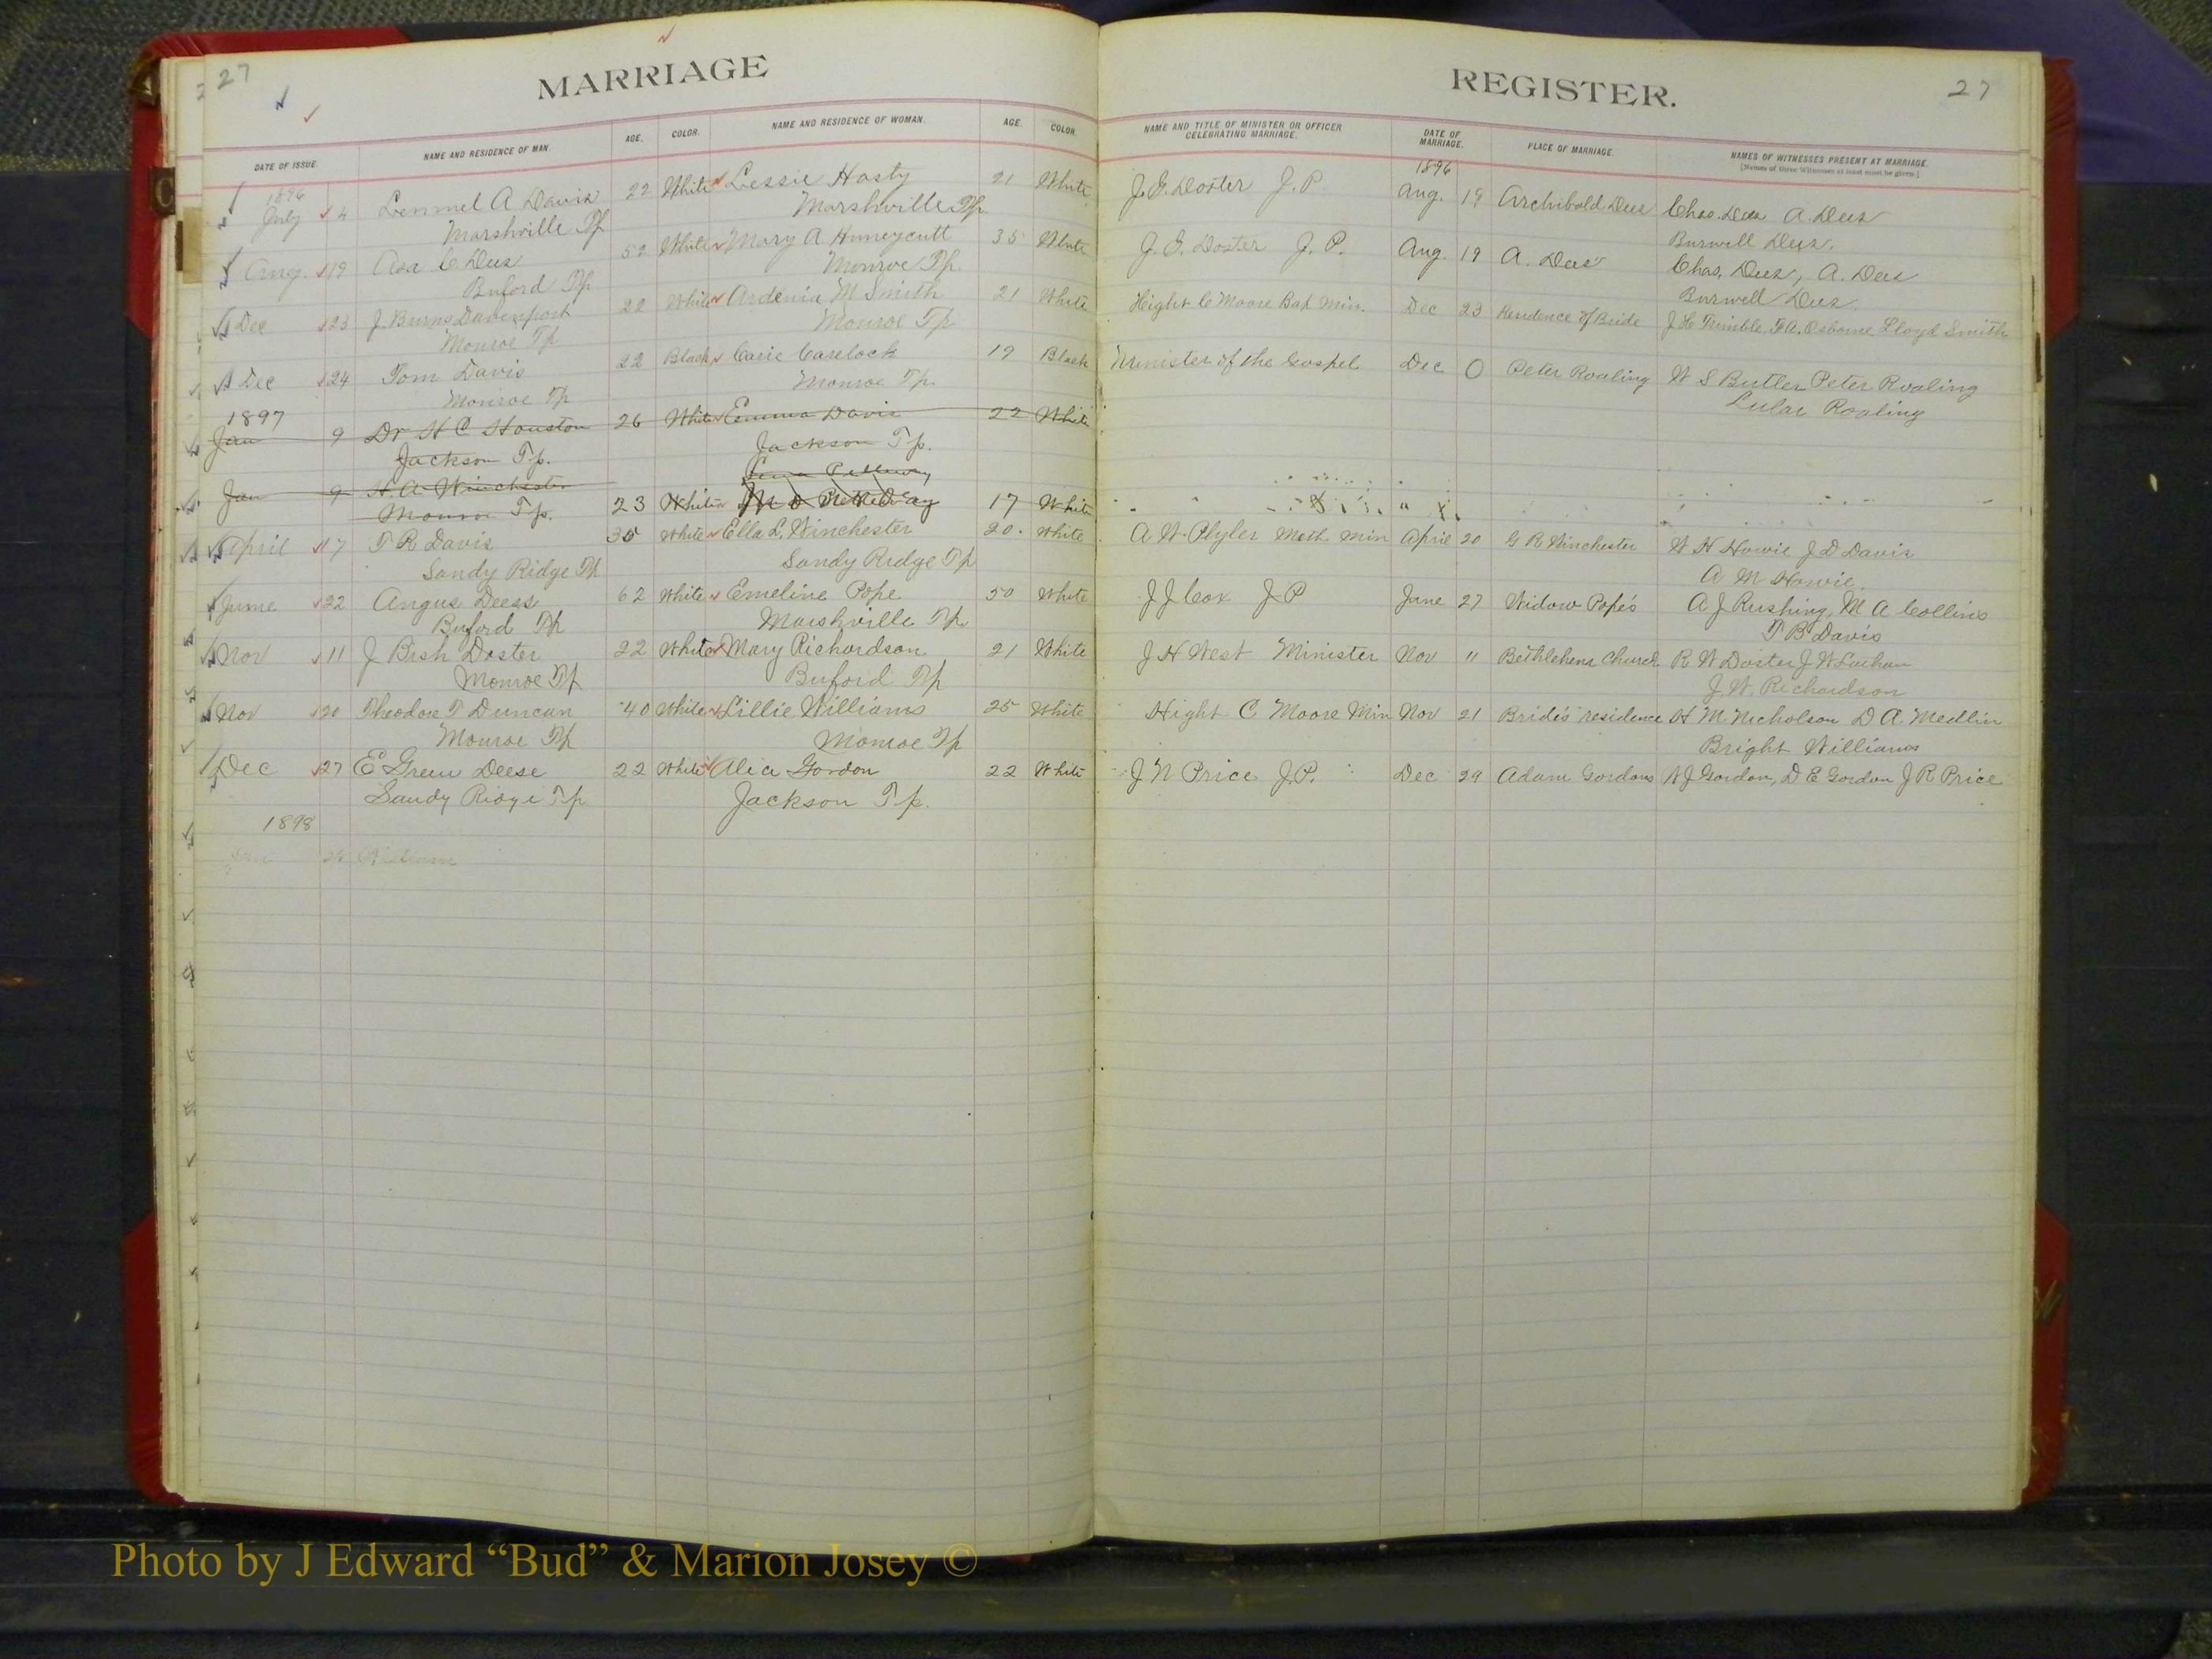 27
MARRIAGE
DATE OF ISSUE. NAME AND RESIDENCE OF MAN. AGE. COLOR. NAME AND RESIDENCE OF WOMAN. AGE. COLOR.
1896
July 4 Lemmel A Davis 22 White Lessie Hasty 21 White
Marshville Tp Marshville Tp
Aug. 19 Asa C Dees 52 White Mary A Huneycutt 35 White
Buford Tp Monroe Tp
Dec 23 J. Burns Davenport 22 White Ardenia M Smith 21 White
Monroe Tp Monroe Tp
Dec 24 Tom Davis 22 Black Carie Carelock 19 Black
Monroe Tp Monroe Tp
1897
Jan 9 Dr H C Houston 26 White Emma Davis 22 White
Jackson Tp. Jackson Tp.
Jan 9 H. A. Winchester 23 White 17 White
Monroe Tp.
April 17 T R Davis 35 White Ella L. Winchester 20. White
Sandy Ridge Tp Sandy Ridge Tp
June 22 Angus Deess 62 White Emeline Pope 50 White
Buford Tp Marshville Tp.
Nov 11 J Bish Doster 22 White Mary Richardson 21 White
Monroe Tp Buford Tp
Nov 20 Theodore T Duncan 40 White Lillie Williams 25 White
Monroe Tp Monroe Tp
Dec 27 E Green Deese 22 White Alice Gordon 22 White
Sandy Ridge Tp Jackson Tp.
1898
Jan
REGISTER.
27
NAME AND TITLE OF MINISTER OR OFFICER CELEBRATING MARRIAGE. DATE OF MARRIAGE. PLACE OF MARRIAGE. NAMES OF WITNESSES PRESENT AT MARRIAGE.
[Names of three Witnesses at least must be given.]
1896
J. E. Doster J. P. Aug. 19 Archibald Dees Chas. Dees A. Dees
Burwell Dees.
J. E. Doster J. P. Aug. 19 A. Dees Chas. Dees, A. Dees
Burwell Dees
Hight C Moore Bap Min. Dec 23 Residence of Bride J. H. Trimble, F. A. Osborne Lloyd Smith
Minister of the Gospel Dec 0 Peter Roaling W S Butler Peter Roaling
Lular Roaling
A W Plyler Meth Min April 20 G R Winchester W H Howie J D Davis
A M Howie.
J J Cox J P June 27 Widow Pope's A J Rushing, M A Collins
T B Davis
J H West Minister Nov 11 Bethlehem Church R W Doster J W
J. W. Richardson
Hight C Moore Min Nov 21 Bride's residence H M Nicholson D A Medlin
Bright Williams
J N Price J.P. Dec 29 Adam Gordons W J Gordon, D E Gordon J R Price
Photo by J Edward “Bud” & Marion Josey ©